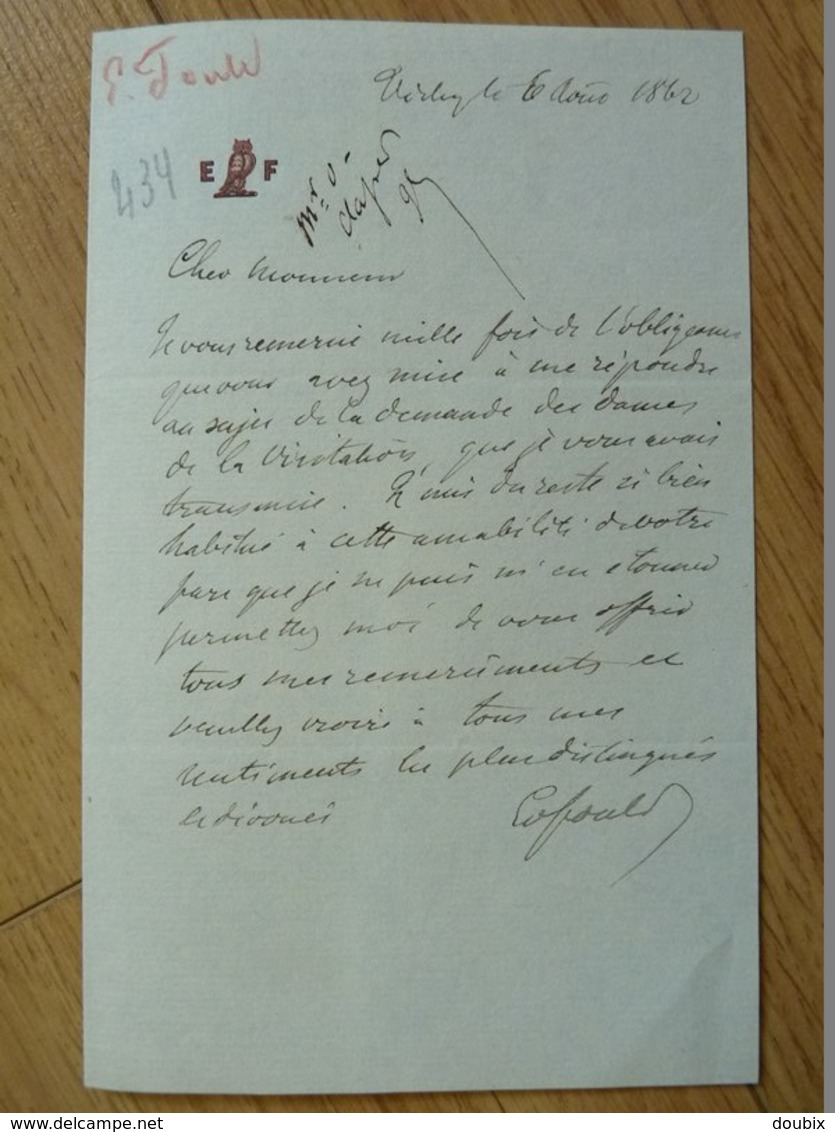 E. Fould
Vichy le 6 Août 1862
434
E F
Mr
Cher Monsieur
Je vous remercie mille fois de l'obligeance
que vous avez mise à me répondre
au sujet de la demande des dames
de la Visitation, que je vous avais
transmise. Je suis du reste si bien
habitué à cette amabilité de votre
part que je ne puis m'en etonner
permettez moi de vous offrir
tous mes remerciments et
veuillez croire à tous mes
sentiments les plus distingués
et dévoués Ed Fould
www.delcampe.net
doubix